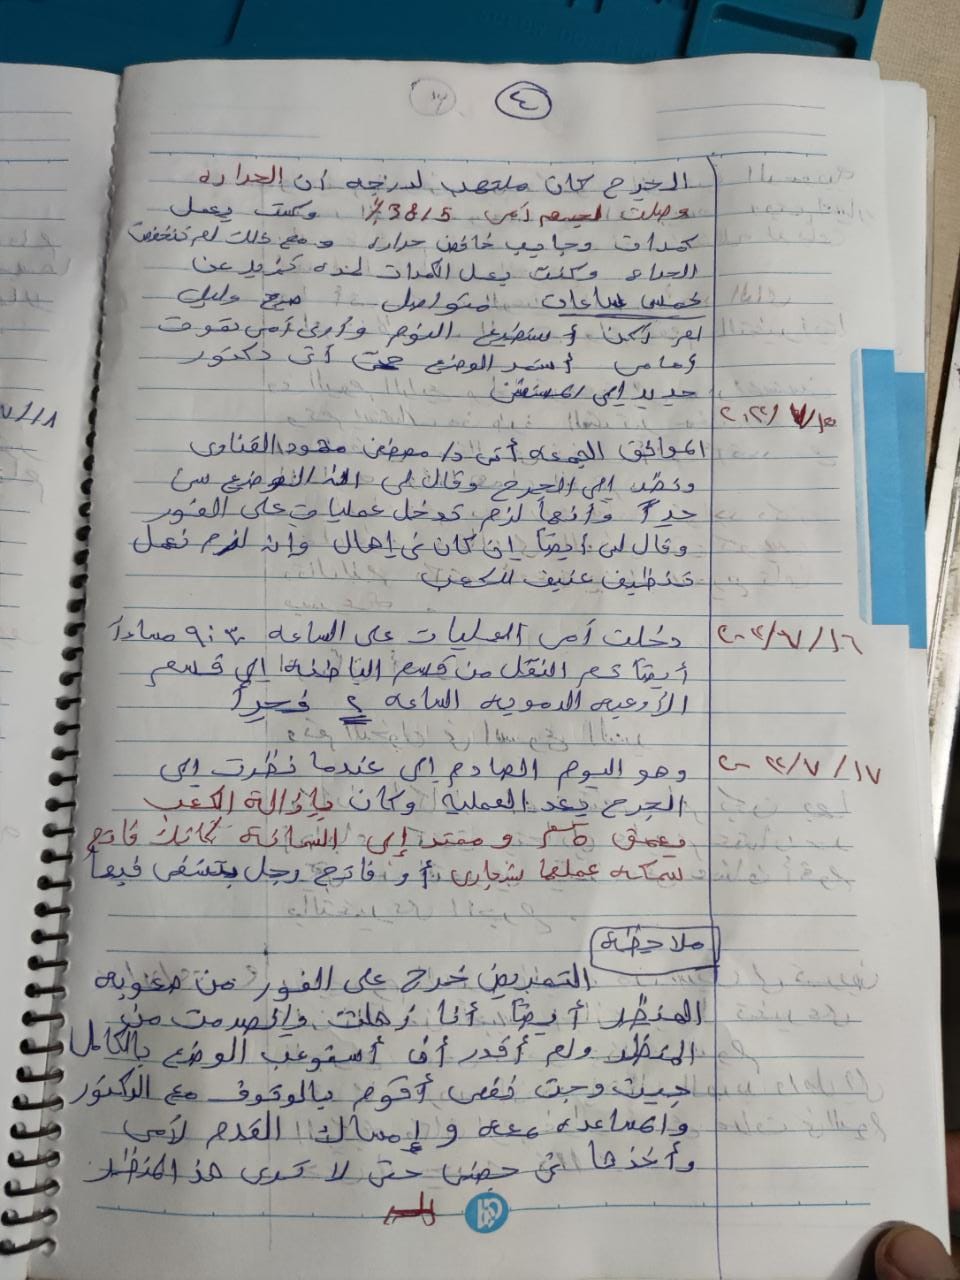 ٤
الجرح كان ملتهب لدرجه أن الحراره
وصلت لجسم أمى 38/5٪ وكنت بعمل
كمدات وجايب خافض حراره ومع ذلك لم تنخفض
الحراره وكنت بعمل الكمدات لمده تزيد عن
خمس ساعات متواصل صرح وليل
لم أكن أستطيع النوم وأرى أمى تموت
أمامى أستمر الوضع حتى أتى دكتور
جديد إلى المستشفى
الموافق الجمعه أتى د/ مصطفى محمود القناوى
ونظر إلى الجرح وقال لى الوضع سئ
جداً وأنها لزم تدخل عمليات على الفور
وقال لى أيضاً إن كان فى إهمال وأن لزم نعمل
تنظيف عنيف للكعب
٢٠٢٠/٧/١٦ دخلت أمى العمليات على الساعه ٩:٣٠ مساءاً
أيضاً تم النقل من قسم الباطنة إلى قسم
الأوعيه الدمويه الساعه ٢ فجراً
٢٠٢٠/٧/١٧ وهو اليوم الصادم لى عندما نظرت إلى
الجرح بعد العملية وكان بإزالة الكعب
بعمق وممتد إلى السمانة كأنك فاتح
سمكه عملها سنجارى أو فاتح رجل بتشفى فيها
ملاحظة
التمريض خرج على الفور من صعوبه
المنظر أيضاً أنا ذهلت وإنصدمت من
المنظر ولم أقدر أن أستوعب الوضع بالكامل
حيث وجت نفسى أقوم بالوقوف مع الدكتور
والمساعده معه وإمساك القدم لأمى
وأخذها فى حضنى حتى لا ترى هذ المنظر